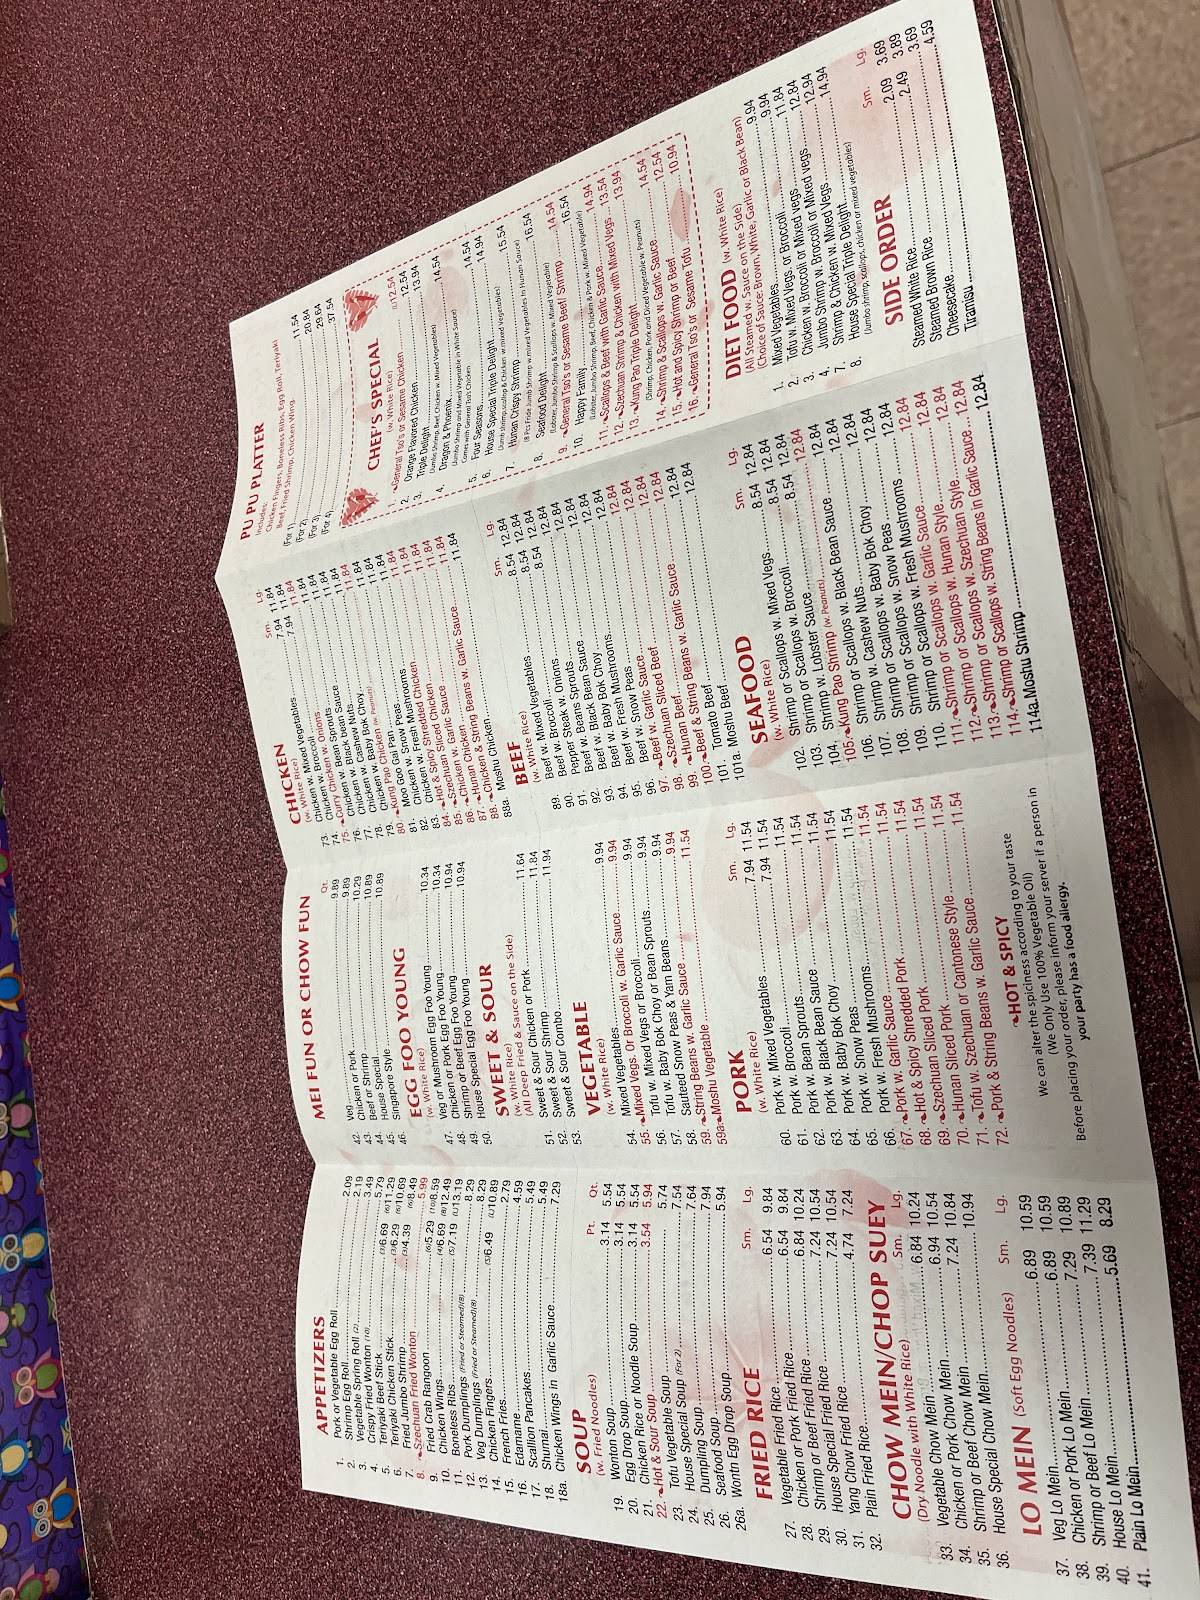 APPETIZERS
1. Pork or Vegetable Egg Roll 2.09
2. Shrimp Egg Roll 2.19
3. Vegetable Spring Roll (2) 3.49
4. Crispy Fried Wonton (10) 5.79
5. Teriyaki Beef Stick (3)6.69 (6)11.29
6. Teriyaki Chicken Stick (3)6.29 (6)10.69
7. Fried Jumbo Shrimp (3)4.39 (6)8.49
8. Szechuan Fried Wonton 5.99
9. Fried Crab Rangoon (6)5.29 (10)8.59
10. Chicken Wings (4)6.69 (8)12.49
11. Boneless Ribs (S)7.19 (L)13.19
12. Pork Dumplings (Fried or Steamed)(8) 8.29
13. Veg Dumplings (Fried or Steamed)(8) 8.29
14. Chicken Fingers (S)6.49 (L)10.89
15. French Fries 2.79
16. Edamame 4.59
17. Scallion Pancakes 5.49
18. Shumai 5.49
18a. Chicken Wings in Garlic Sauce 7.29
SOUP
(w. Fried Noodles) Pt. Qt.
19. Wonton Soup 3.14 5.54
20. Egg Drop Soup 3.14 5.54
21. Chicken Rice or Noodle Soup 3.14 5.54
22. Hot & Sour Soup 3.54 5.94
23. Tofu Vegetable Soup 5.74
24. House Special Soup (For 2) 7.54
25. Dumpling Soup 7.64
26. Seafood Soup 7.94
26a. Wonth Egg Drop Soup 5.94
FRIED RICE Sm. Lg.
27. Vegetable Fried Rice 6.54 9.84
28. Chicken or Pork Fried Rice 6.54 9.84
29. Shrimp or Beef Fried Rice 6.84 10.24
30. House Special Fried Rice 7.24 10.54
31. Yang Chow Fried Rice 7.24 10.54
32. Plain Fried Rice 4.74 7.24
CHOW MEIN/CHOP SUEY
(Dry Noodle with White Rice) Sm. Lg.
33. Vegetable Chow Mein 6.84 10.24
34. Chicken or Pork Chow Mein 6.94 10.54
35. Shrimp or Beef Chow Mein 7.24 10.84
36. House Special Chow Mein 10.94
LO MEIN (Soft Egg Noodles) Sm. Lg.
37. Veg Lo Mein 6.89 10.59
38. Chicken or Pork Lo Mein 6.89 10.59
39. Shrimp or Beef Lo Mein 7.29 10.89
40. House Lo Mein 7.39 11.29
41. Plain Lo Mein 5.69 8.29
MEI FUN OR CHOW FUN
Qt.
42. Veg 9.89
43. Chicken or Pork 9.89
44. Beef or Shrimp 10.29
45. House Special 10.89
46. Singapore Style 10.89
EGG FOO YOUNG
(w. White Rice)
47. Veg or Mushroom Egg Foo Young 10.34
48. Chicken or Pork Egg Foo Young 10.34
49. Shrimp or Beef Egg Foo Young 10.94
50. House Special Egg Foo Young 10.94
SWEET & SOUR
(w. White Rice)
(All Deep Fried & Sauce on the Side)
51. Sweet & Sour Chicken or Pork 11.64
52. Sweet & Sour Shrimp 11.84
53. Sweet & Sour Combo 11.94
VEGETABLE
(w. White Rice)
54. Mixed Vegetables 9.94
55. Mixed Vegs. Or Broccoli w. Garlic Sauce 9.94
56. Tofu w. Mixed Vegs or Broccoli 9.94
57. Tofu w. Baby Bok Choy or Bean Sprouts 9.94
58. Sauteed Snow Peas & Yam Beans 9.94
59. String Beans w. Garlic Sauce 9.94
59a. Moshu Vegetable 11.54
PORK
(w. White Rice) Sm. Lg.
60. Pork w. Mixed Vegetables 7.94 11.54
61. Pork w. Broccoli 7.94 11.54
62. Pork w. Bean Sprouts 11.54
63. Pork w. Black Bean Sauce 11.54
64. Pork w. Baby Bok Choy 11.54
65. Pork w. Snow Peas 11.54
66. Pork w. Fresh Mushrooms 11.54
67. Pork w. Garlic Sauce 11.54
68. Hot & Spicy Shredded Pork 11.54
69. Szechuan Sliced Pork 11.54
70. Hunan Sliced Pork 11.54
71. Tofu w. Szechuan or Cantonese Style 11.54
72. Pork & String Beans w. Garlic Sauce 11.54
HOT & SPICY
We can alter the spiciness according to your taste
(We Only Use 100% Vegetable Oil)
Before placing your order, please inform your server if a person in
your party has a food allergy.
CHICKEN
(w. White Rice) Sm. Lg.
73. Chicken w. Mixed Vegetables 7.94 11.84
74. Chicken w. Broccoli 7.94 11.84
75. Curry Chicken w. Onions 11.84
76. Chicken w. Bean Sprouts 11.84
77. Chicken w. Black bean Sauce 11.84
78. Chicken w. Cashew Nuts 11.84
79. Chicken w. Baby Bok Choy 11.84
80. Kung Pao Chicken (w. Peanuts) 11.84
81. Moo Goo Gai Pan 11.84
82. Chicken w. Snow Peas 11.84
83. Chicken w. Fresh Mushrooms 11.84
84. Hot & Spicy Shredded Chicken 11.84
85. Szechuan Sliced Chicken 11.84
86. Chicken w. Garlic Sauce 11.84
87. Hunan Chicken 11.84
88. Chicken & String Beans w. Garlic Sauce 11.84
88a. Moshu Chicken 11.84
BEEF
(w. White Rice) Sm. Lg.
89. Beef w. Mixed Vegetables 8.54 12.84
90. Beef w. Broccoli 8.54 12.84
91. Pepper Steak w. Onions 8.54 12.84
92. Beef w. Beans Sprouts 12.84
93. Beef w. Black Bean Sauce 12.84
94. Beef w. Baby Bok Choy 12.84
95. Beef w. Fresh Mushrooms 12.84
96. Beef w. Snow Peas 12.84
97. Beef w. Garlic Sauce 12.84
98. Szechuan Sliced Beef 12.84
99. Hunan Beef 12.84
100. Beef & String Beans w. Garlic Sauce 12.84
101. Tomato Beef 12.84
101a. Moshu Beef 12.84
SEAFOOD
(w. White Rice) Sm. Lg.
102. Shrimp or Scallops w. Mixed Vegs 8.54 12.84
103. Shrimp or Scallops w. Broccoli 8.54 12.84
104. Shrimp w. Lobster Sauce 8.54 12.84
105. Kung Pao Shrimp (w. Peanuts) 12.84
106. Shrimp or Scallops w. Black Bean Sauce 12.84
107. Shrimp w. Cashew Nuts 12.84
108. Shrimp or Scallops w. Baby Bok Choy 12.84
109. Shrimp or Scallops w. Snow Peas 12.84
110. Shrimp or Scallops w. Fresh Mushrooms 12.84
111. Shrimp or Scallops w. Garlic Sauce 12.84
112. Shrimp or Scallops w. Hunan Style 12.84
113. Shrimp or Scallops w. Szechuan Style 12.84
114. Shrimp or Scallops w. String Beans in Garlic Sauce 12.84
114a. Moshu Shrimp 12.84
PU PU PLATTER
Includes:
Chicken Fingers, Boneless Ribs, Egg Roll, Teriyaki
Beef, Fried Shrimp, Chicken Wing.
(For 1) 11.54
(For 2) 20.84
(For 3) 29.64
(For 4) 37.54
CHEF'S SPECIAL
(w. White Rice)
1. General Tso's or Sesame Chicken (L)12.54
2. Orange Flavored Chicken 12.54
3. Triple Delight 13.94
(Jumbo Shrimp, Beef, Chicken w. Mixed Vegetables)
4. Dragon & Phoenix 14.54
(Jumbo Shrimp and Mixed Vegetable in White Sauce)
Comes with General Tso's Chicken
5. Four Seasons 14.54
6. House Special Triple Delight 14.94
(Jumbo shrimp, scallop & Chicken w. mixed Vegetables)
7. Hunan Crispy Shrimp 15.54
(8 Pcs Fride Jumb Shrimp w. mixed Vegetables in Hunan Sauce)
8. Seafood Delight 16.54
(Lobster, Jumbo Shrimp & Scallops w. Mixed Vegetable)
9. General Tso's or Sesame Beef/ Shrimp 14.54
10. Happy Family 16.54
(Lobster, Jumbo Shrimp, Beef, Chicken & Pork w. Mixed Vegetable)
11. Scallops & Beef with Garlic Sauce 14.94
12. Szechuan Shrimp & Chicken with Mixed Vegs 13.54
13. Kung Pao Triple Delight 13.94
(Shrimp, Chicken, Pork and Diced Vegetable w. Peanuts)
14. Shrimp & Scallops w. Garlic Sauce 14.54
15. Hot and Spicy Shrimp or Beef 12.54
16. General Tso's or Sesame Tofu 10.94
DIET FOOD (w. White Rice)
(All Steamed w. Sauce on the Side)
(Choice of Sauce: Brown, White, Garlic or Black Bean)
1. Mixed Vegetables 9.94
2. Tofu w. Mixed Vegs. or Broccoli 9.94
3. Chicken w. Broccoli or Mixed vegs 11.84
4. Jumbo Shrimp w. Broccoli or Mixed vegs 12.84
7. Shrimp & Chicken w. Mixed Vegs 12.94
8. House Special Triple Delight 14.94
(Jumbo shrimp, scallops, chicken or mixed vegetables)
SIDE ORDER Sm. Lg.
Steamed White Rice 2.09 3.69
Steamed Brown Rice 2.49 3.89
Cheesecake 3.69
Tiramisu 4.59